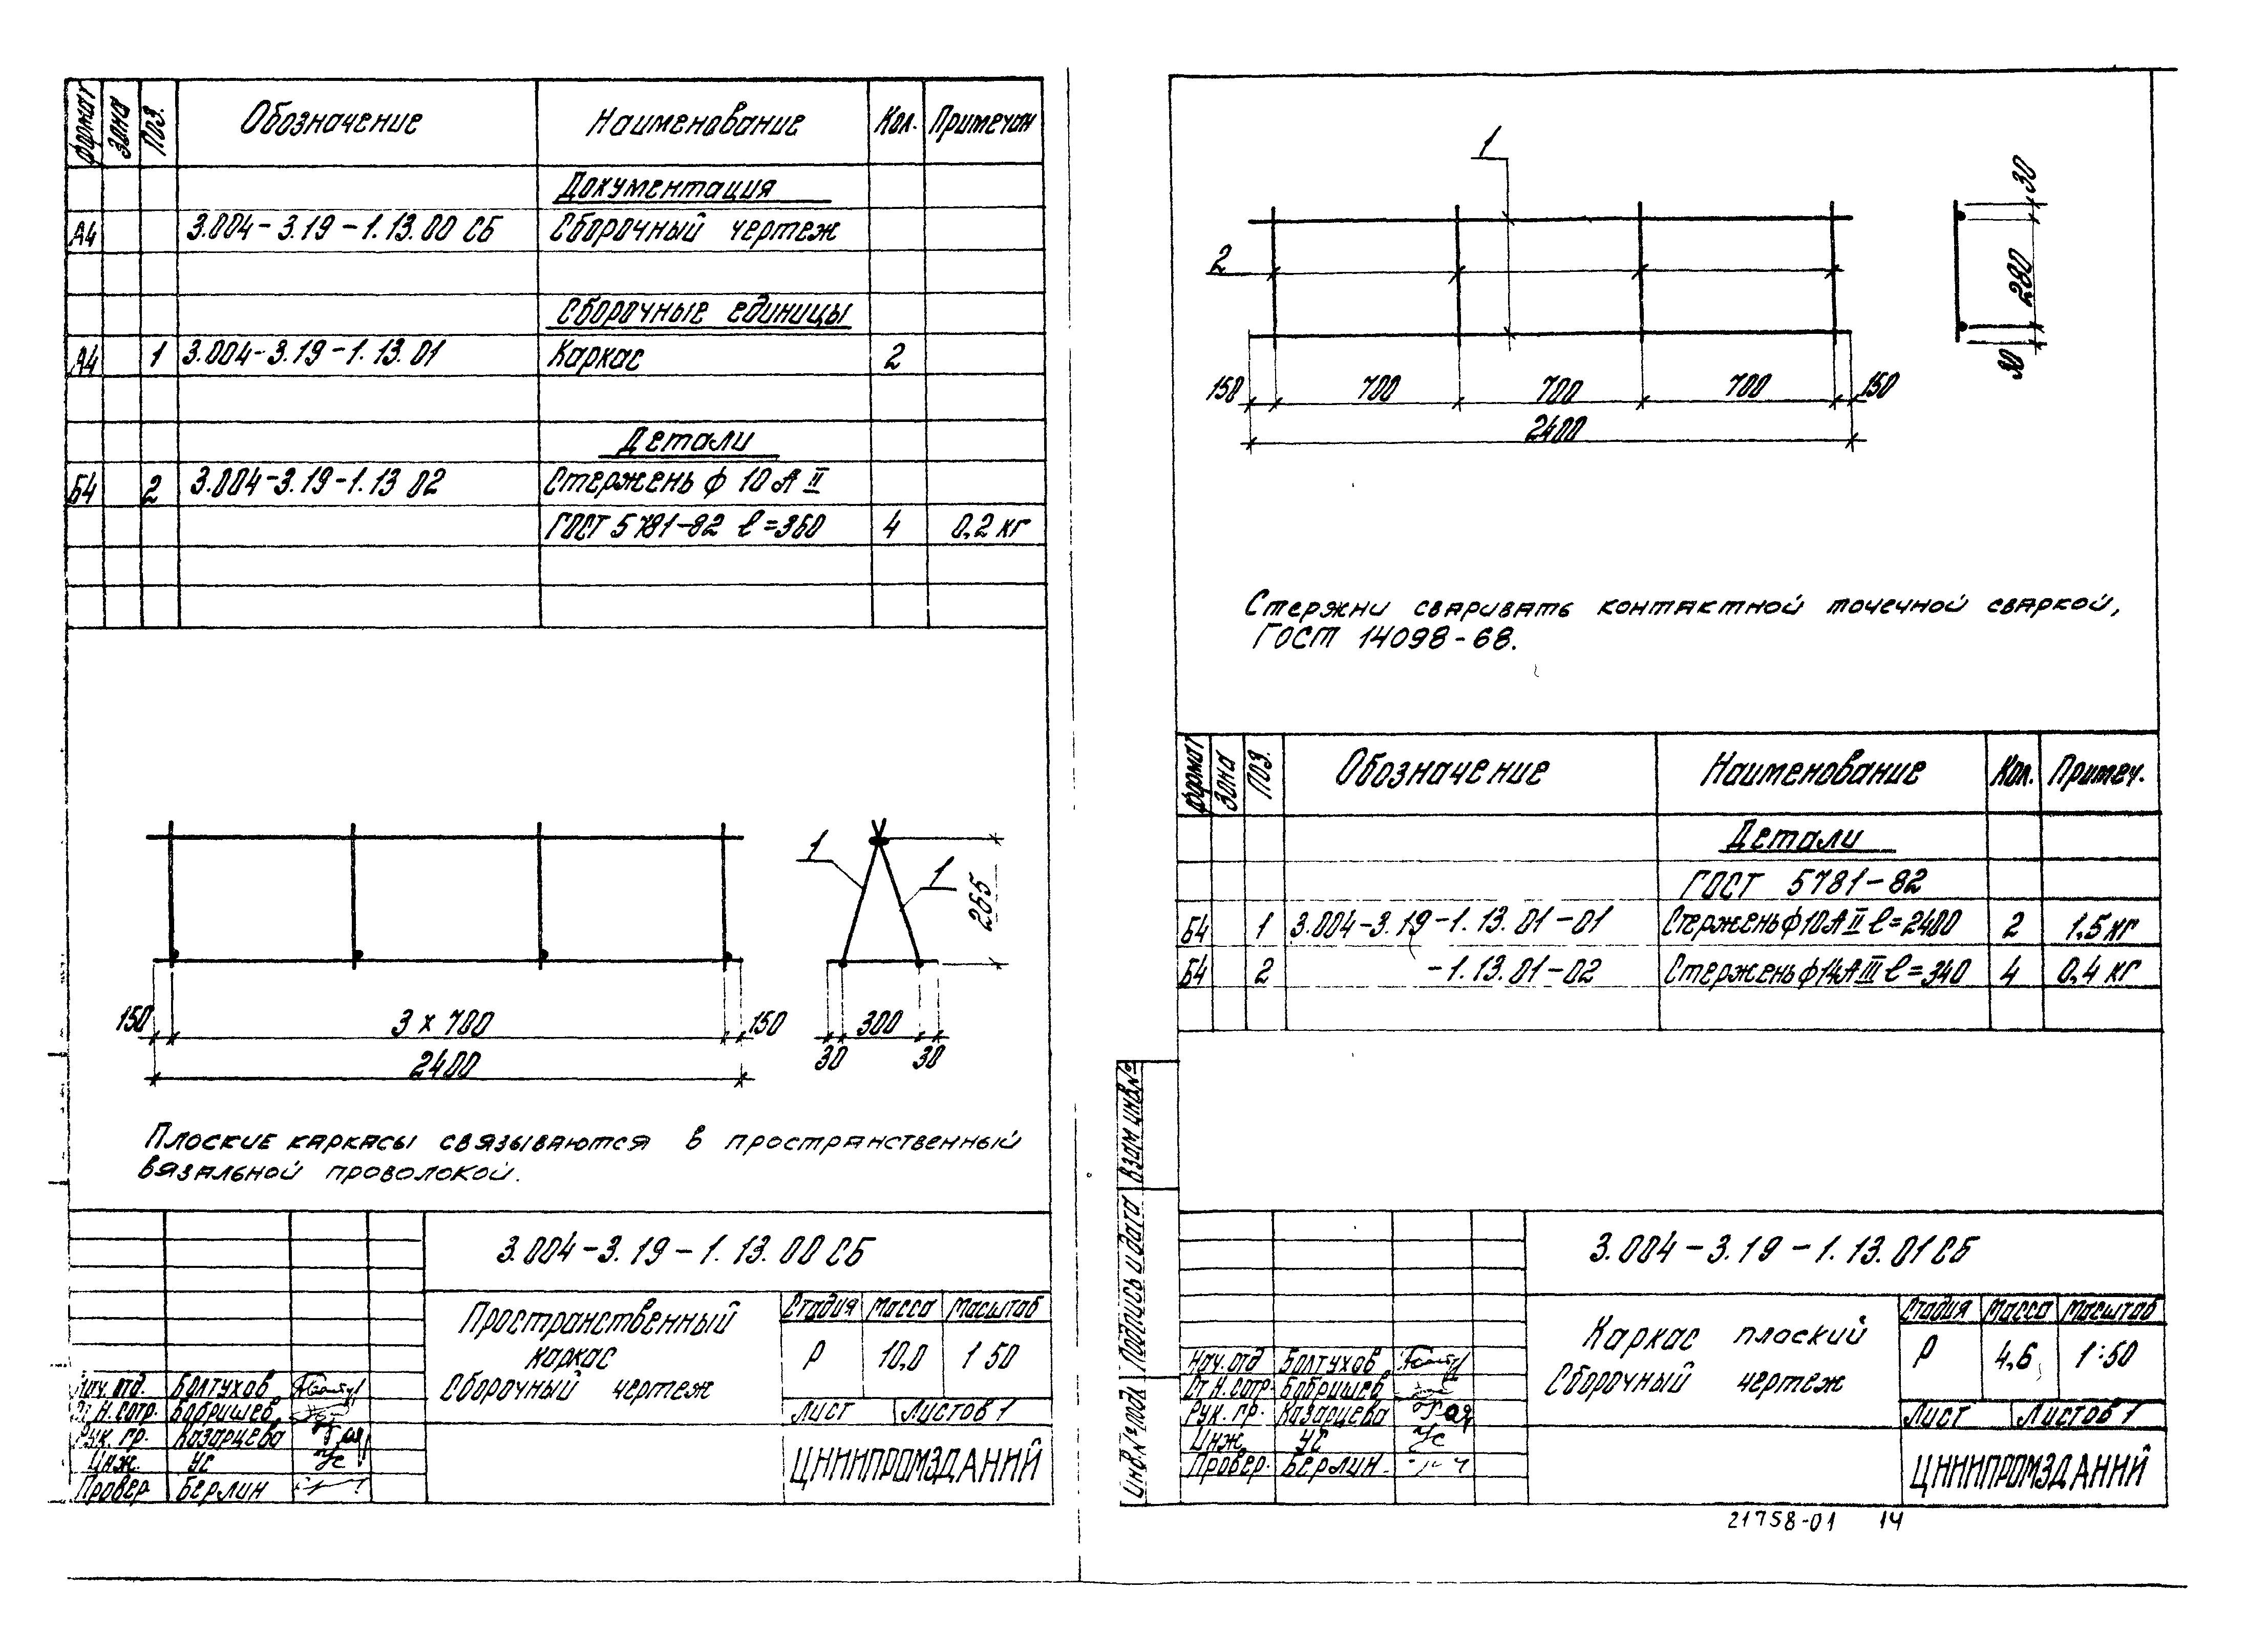 Формат Зона Поз. Обозначение Наименование Кол. Примечан
Документация
А4 3.004-3.19-1.13.00 СБ Сборочный чертеж
Сборочные единицы
А4 1 3.004-3.19-1.13.01 Каркас 2
Детали
Б4 2 3.004-3.19-1.13 02 Стержень ф 10 А II
ГОСТ 5781-82 ℓ=360 4 0,2 кг
1
1
265
150 3 х 700 150
300
30 30
2400
Плоские каркасы связываются в пространственный
вязальной проволокой.
3.004-3.19-1.13.00 СБ
Пространственный
каркас
Сборочный чертеж
Стадия Масса Масштаб
Р 10,0 1 50
Лист Листов 1
Нач. отд. Болтухов
Ст Н. сотр. Бобришев
Рук. гр. Казарцева
Инж. УС
Провер Берлин
ЦНИИПРОМЗДАНИЙ
1
2
30
280
30
150 700 700 700 150
2400
Стержни сваривать контактной точечной сваркой,
ГОСТ 14098-68.
Формат Зона Поз. Обозначение Наименование Кол. Примеч.
Детали
ГОСТ 5781-82
Б4 1 3.004-3.19-1.13.01-01 Стержень ф10А II ℓ=2400 2 1,5 кг
Б4 2 -1.13.01-02 Стержень ф14А III ℓ=340 4 0,4 кг
Инв.№ подл Подпись и дата Взам инв.№
3.004-3.19-1.13.01 СБ
Каркас плоский
Сборочный чертеж
Стадия Масса Масштаб
Р 4,6 1:50
Лист Листов 1
Нач. отд Болтухов
Ст Н. сотр. Бобришев
Рук. гр. Казарцева
Инж. УС
Провер. Берлин.
ЦНИИПРОМЗДАНИЙ
21758-01 14